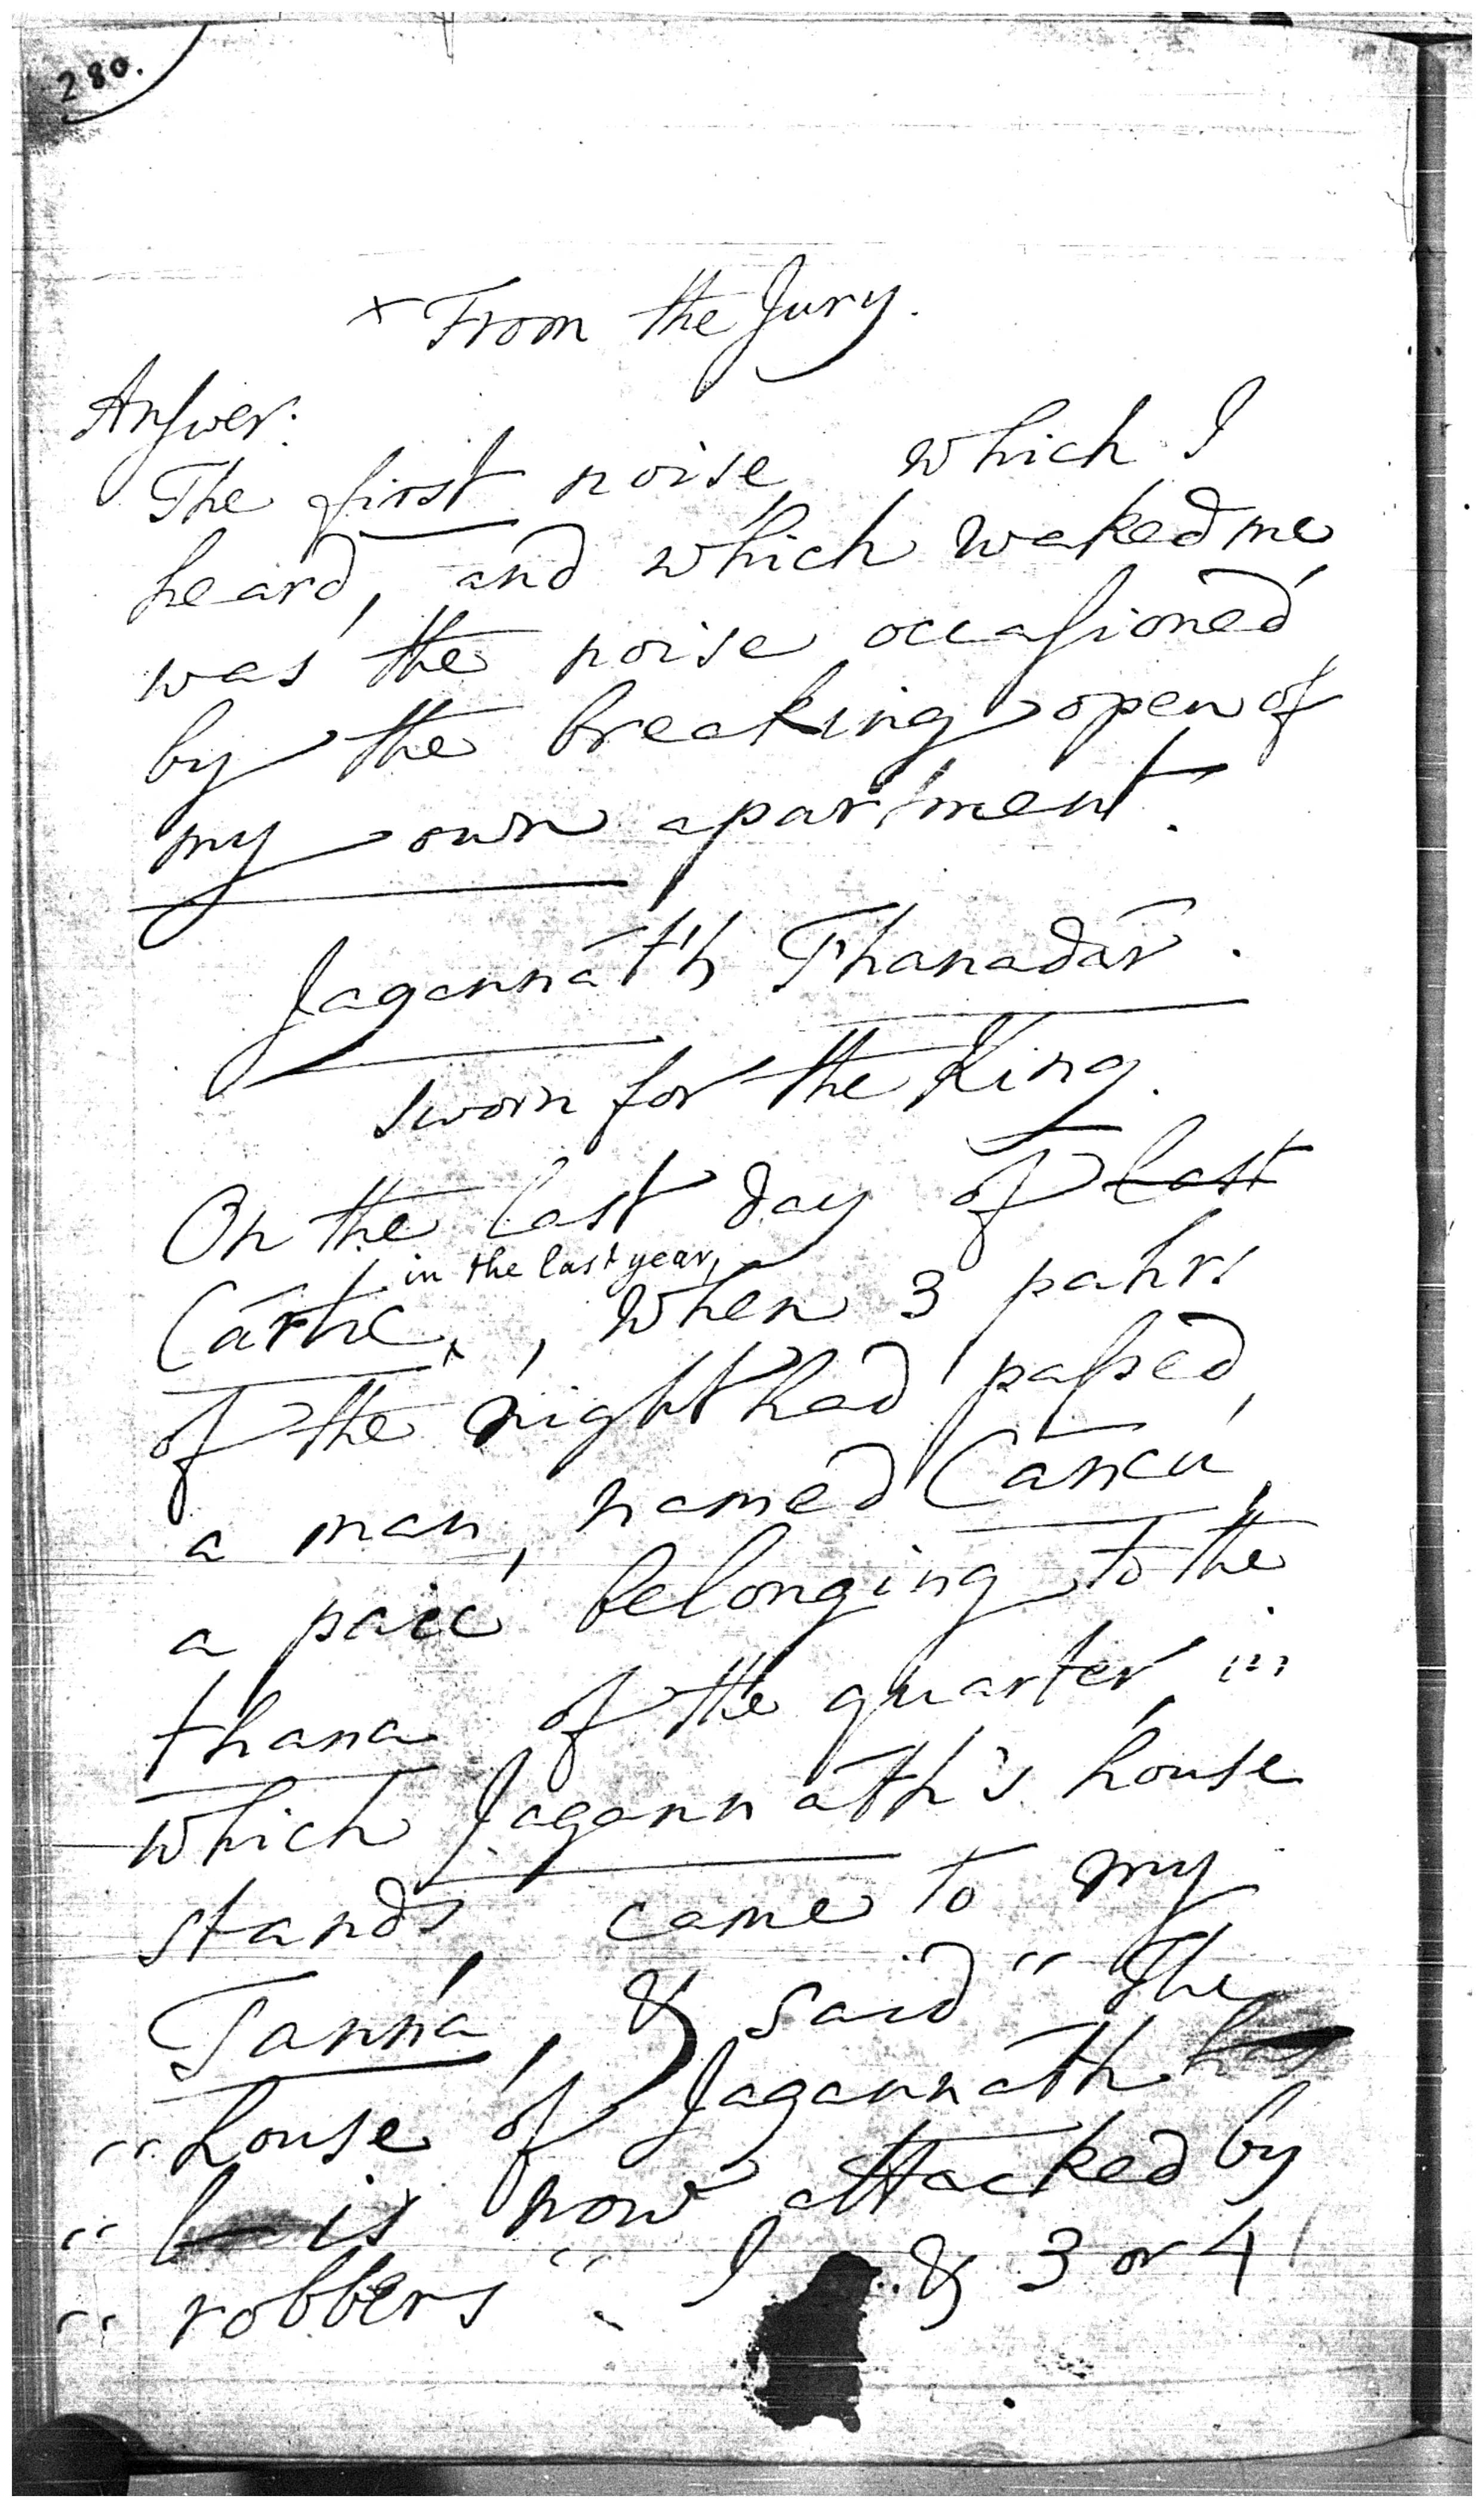 280.
× From the Jury.
Answer:
The first noise which I
heard, and which waked me,
was the noise occasioned
by the breaking open of
my own apartment.
Jagannát'h Thanadár.
sworn for the King.
On the last day of last
in the last year,
Cártic, , when 3 pahrs
of the night had passed,
a man, named Cáncú,
a paic belonging to the
thana of the quarter, in
which Jagannáth's house
stands, came to my
Tanná, & said "The
"house of Jagannáth has
" is now attacked by
"robbers". I & 3 or 4